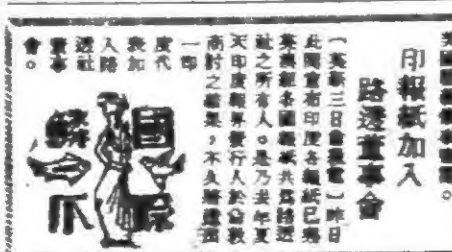 印報紙加入
路透董事會
三日 電 昨日
此間宣布印度各報紙已與
英澳紐各國報紙共為路透
社之所有人。是乃去年夏
天印度報界發行人於倫敦
商討之結果,不久將
一印
度代
表加
入路
透社
董事
會。
國際
鱗爪